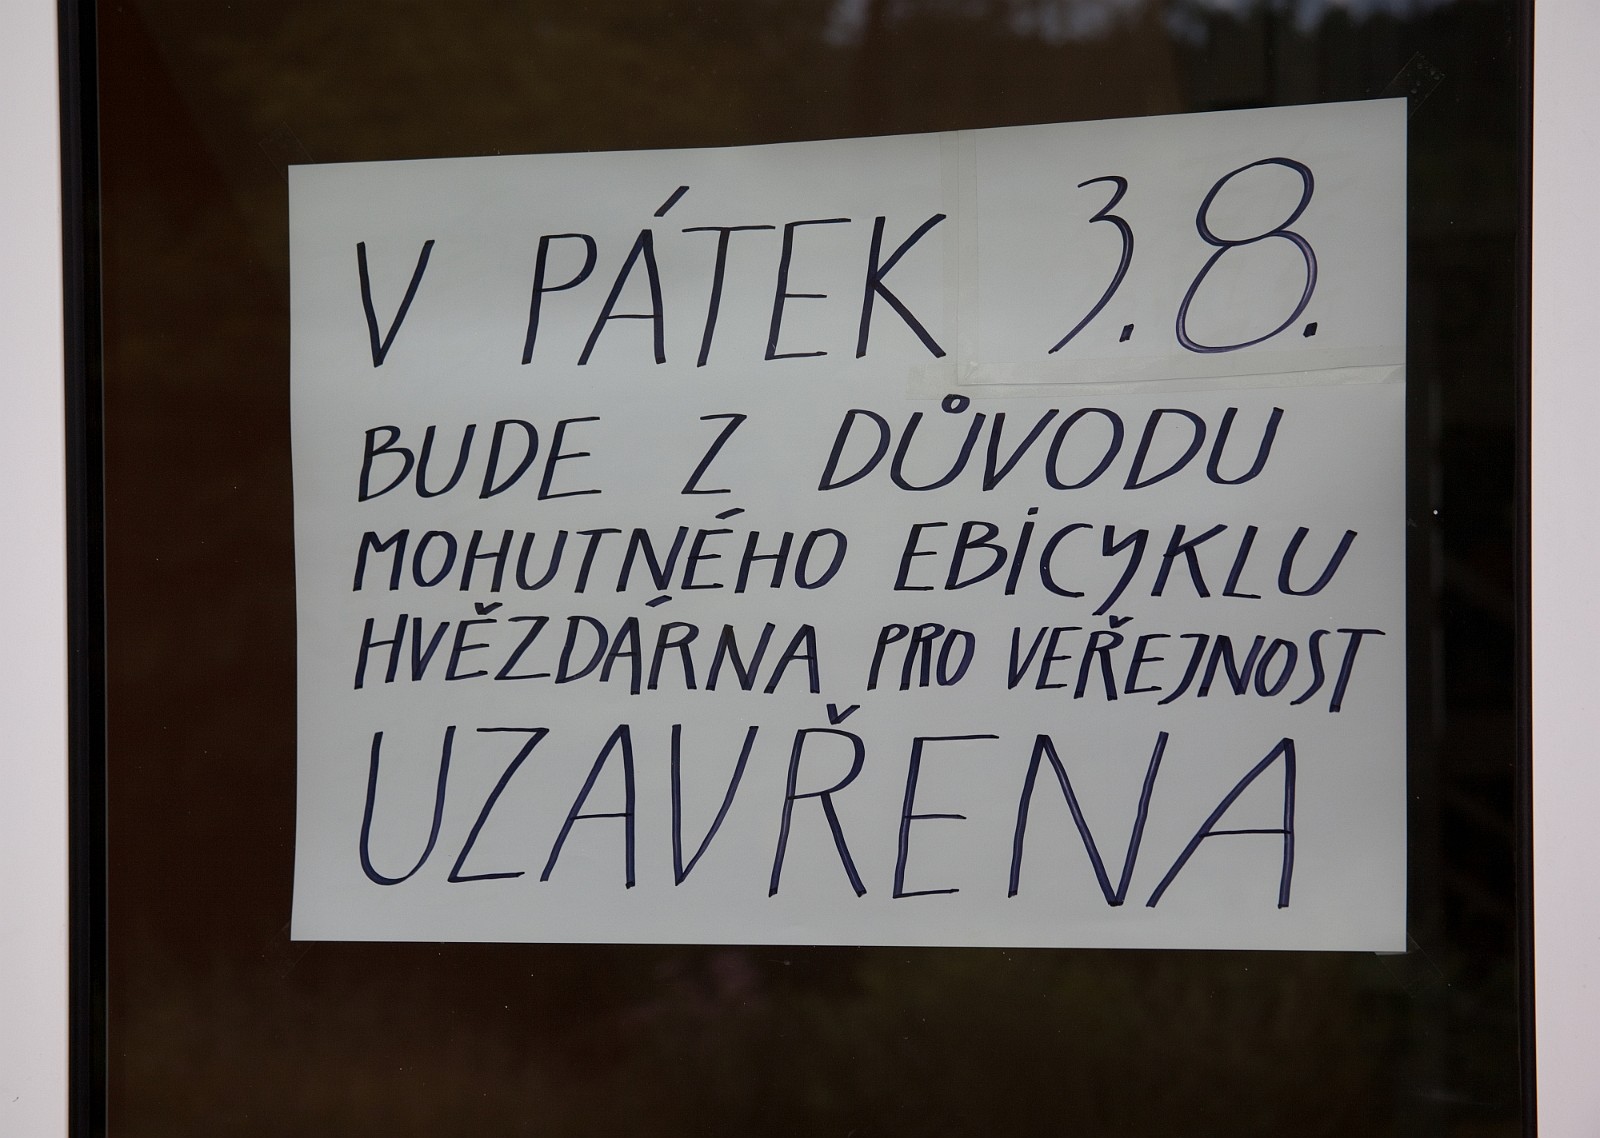 V PÁTEK 3.8.
BUDE Z DŮVODU
MOHUTNÉHO EBICYKLU
HVĚZDÁRNA PRO VEŘEJNOST
UZAVŘENA